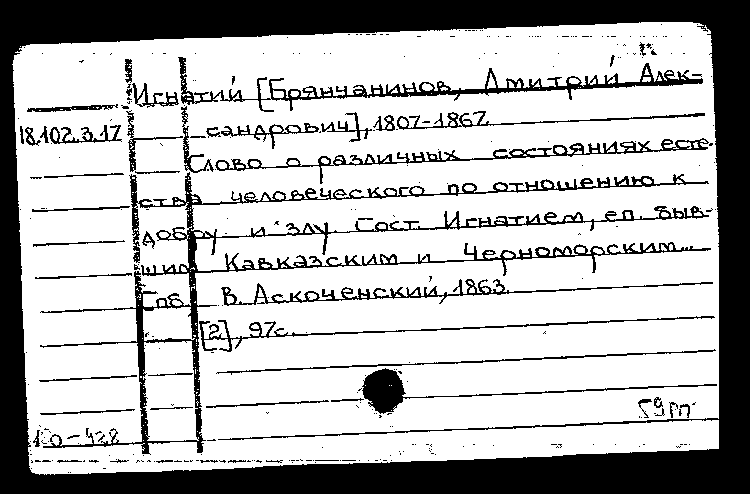 Игнатий [Брянчанинов, Дмитрий Алек-
18.102.3.17 сандрович], 1807-1867
Слово о различных состояниях есте-
ства человеческого по отношению к
добру и злу. Сост. Игнатием, еп. быв-
шим Кавказским и Черноморским...
Спб, В. Аскоченский, 1863.
[2], 97с.
59рп